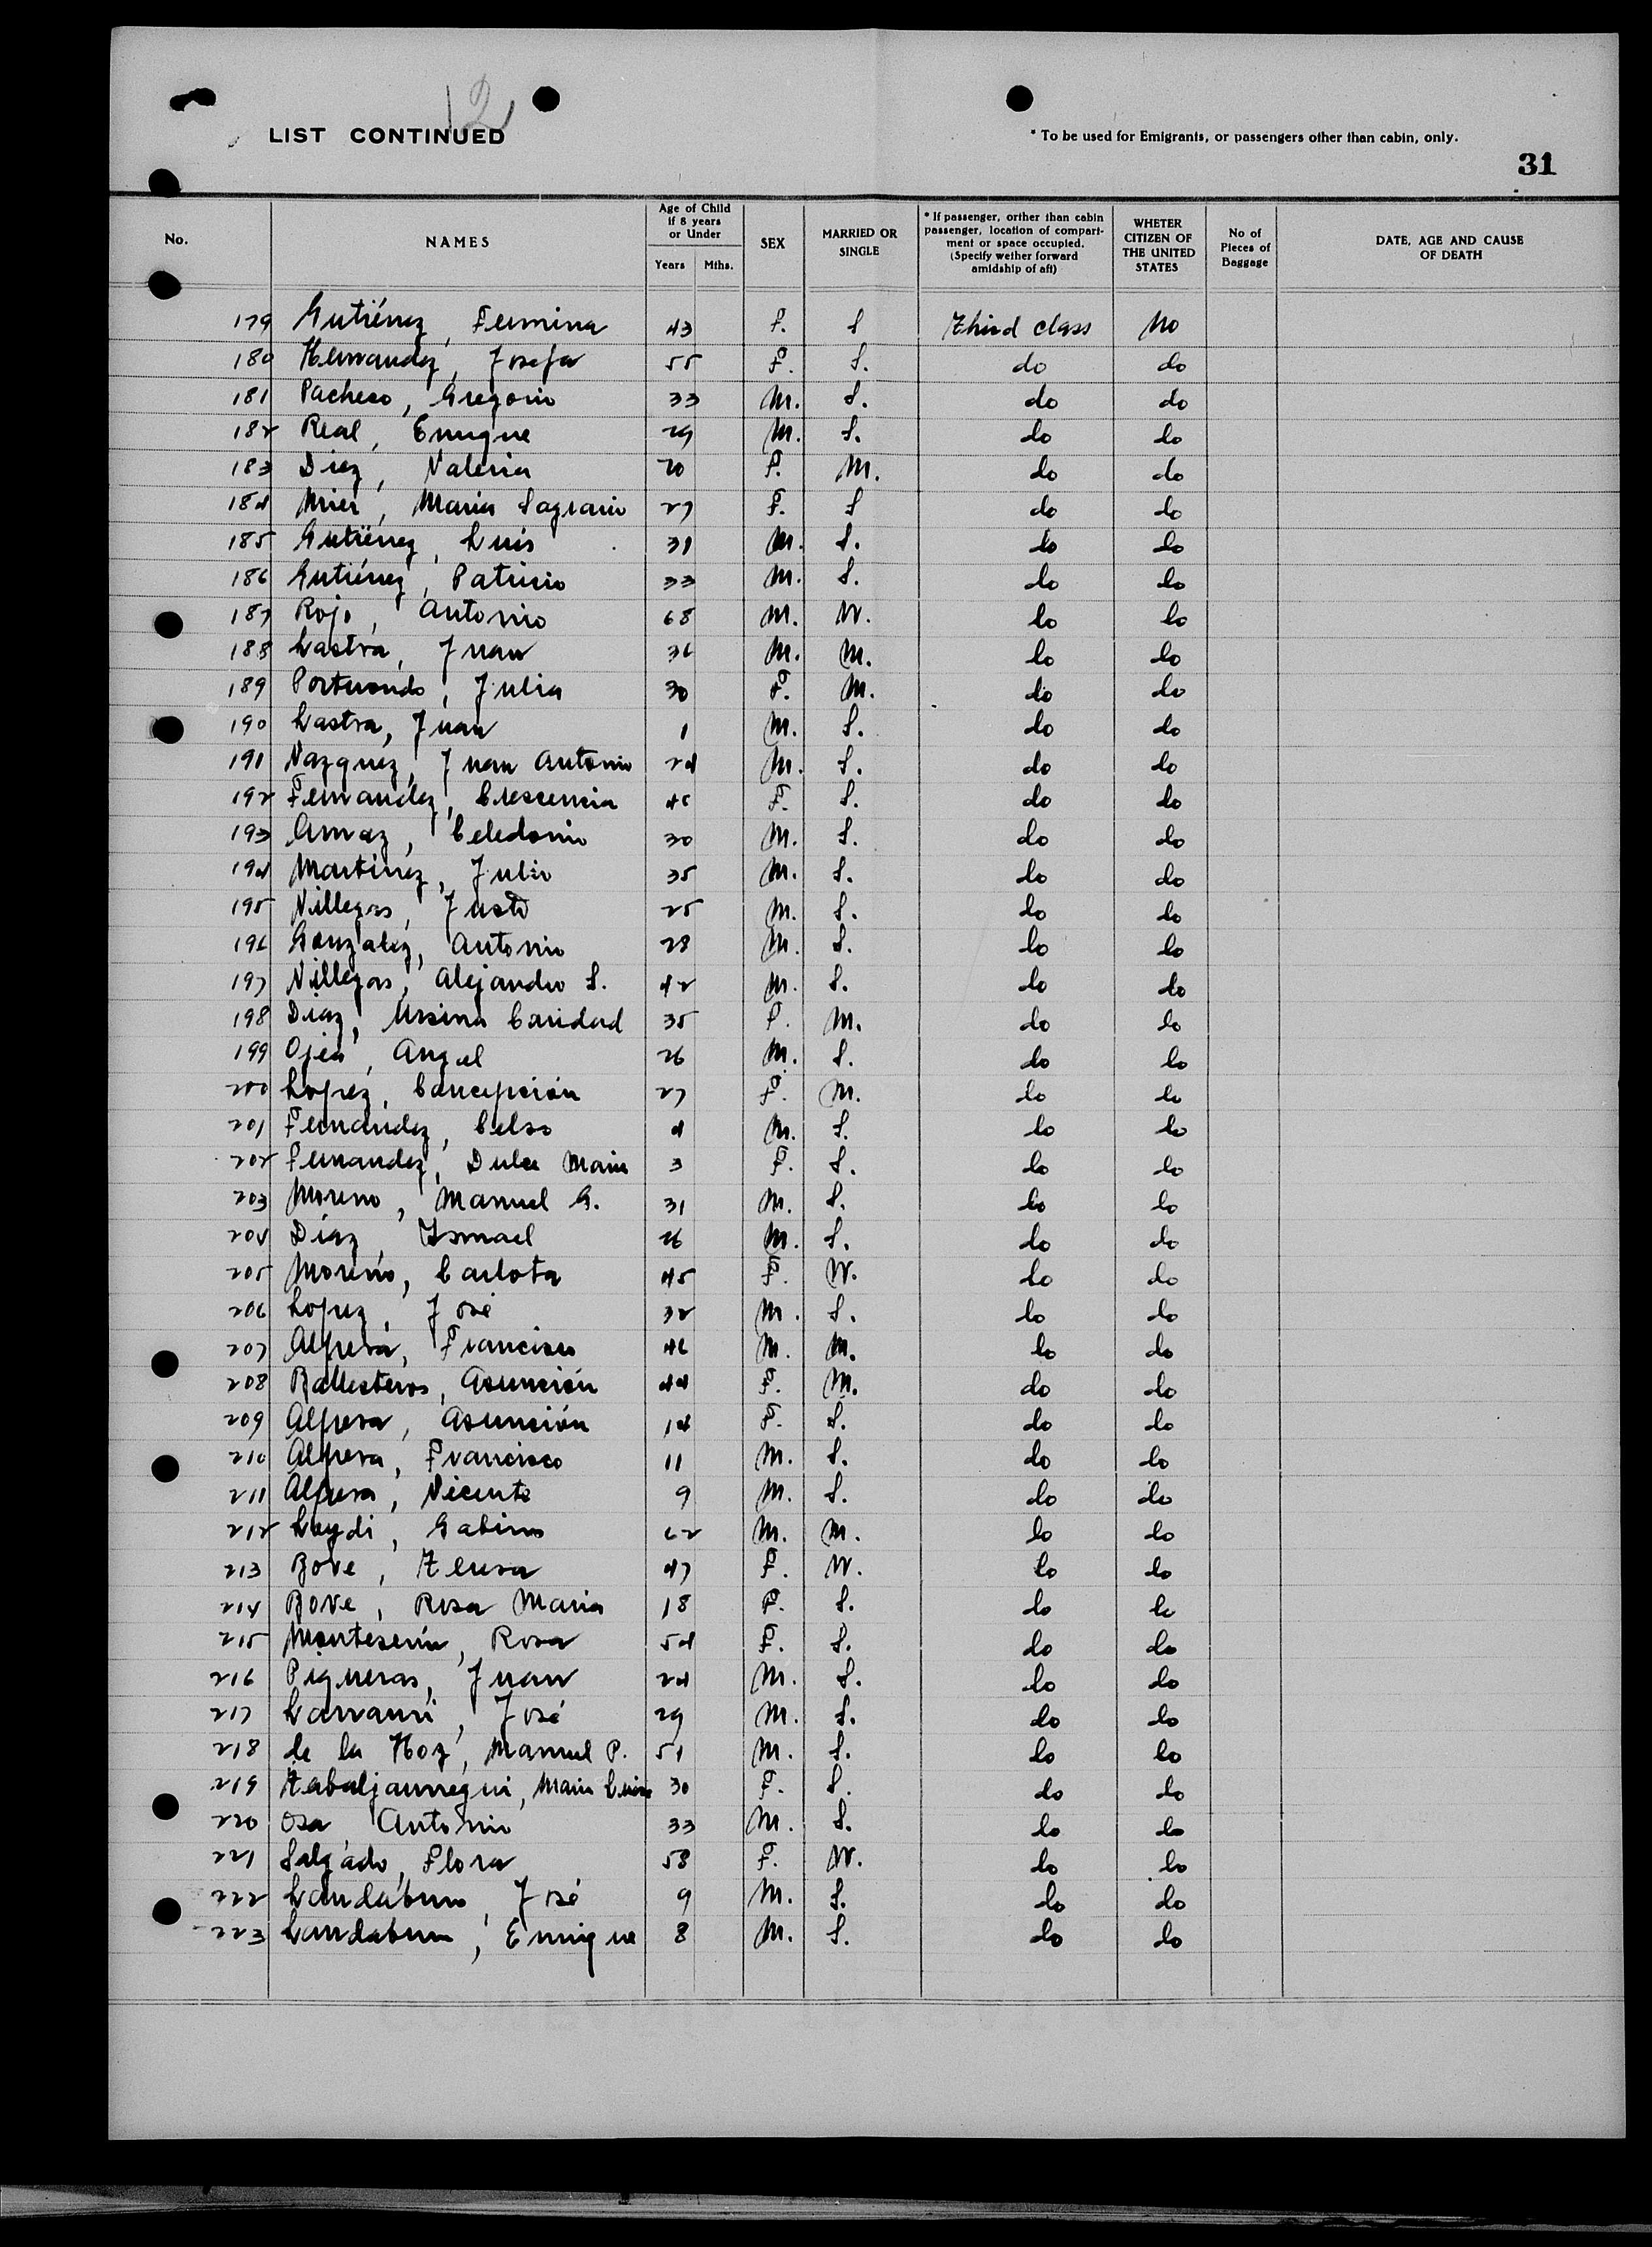 12
LIST CONTINUED
* To be used for Emigrants, or passengers other than cabin, only.
31
No. NAMES Age of Child if 8 years or Under Years Mths. SEX MARRIED OR SINGLE * If passenger, orther than cabin passenger, location of compartment or space occupied. (Specify wether forward amidship of aft) WHETER CITIZEN OF THE UNITED STATES No of Pieces of Baggage DATE, AGE AND CAUSE OF DEATH
179 Gutiérrez, Fermina 43 F. S Third class No
180 Hernandez, Josefa 55 F. S. do do
181 Pacheco, Gregorio 33 M. S. do do
182 Real, Enrique 29 M. S. do do
183 Diez, Valeria 20 F. M. do do
184 Mier, Maria Sagrario 27 F. S do do
185 Gutiérrez, Luis 31 M. S. do do
186 Gutiérrez, Patricio 33 M. S. do do
187 Rojo, Antonio 68 M. W. do do
188 Lastra, Juan 36 M. M. do do
189 Portuondo, Julia 30 F. M. do do
190 Lastra, Juan 1 M. S. do do
191 Vazquez, Juan Antonio 24 M. S. do do
192 Fernandez, Crescencia 46 F. S. do do
193 Arnaz, Celedonio 30 M. S. do do
194 Martinez, Julio 35 M. S. do do
195 Villegas, Justo 25 M. S. do do
196 Gonzalez, Antonio 28 M. S. do do
197 Villegas, Alejandro S. 42 M. S. do do
198 Diaz, Ursina Caridad 35 F. M. do do
199 Ojea, Angel 26 M. S. do do
200 Lopez, Concepción 27 F. M. do do
201 Fernandez, Celso 4 M. S. do do
202 Fernandez, Dulce Maria 3 F. S. do do
203 Moreno, Manuel G. 31 M. S. do do
204 Díaz, Ismael 26 M. S. do do
205 Moreno, Carlota 45 F. W. do do
206 Lopez, José 32 M. S. do do
207 Alpera, Francisco 46 M. M. do do
208 Ballesteros, Asunción 44 F. M. do do
209 Alpera, Asunción 14 F. S. do do
210 Alpera, Francisco 11 M. S. do do
211 Alpera, Vicente 9 M. S. do do
212 Loydi, Gabino 62 M. M. do do
213 Bove, Teresa 47 F. W. do do
214 Bove, Rosa Maria 18 F. S. do do
215 Monteserin, Rosa 54 F. S. do do
216 Piqueras, Juan 24 M. S. do do
217 Larrauri, José 29 M. S. do do
218 de la Hoz, Manuel P. 51 M. S. do do
219 Zabaljauregui, Maria Luisa 30 F. S. do do
220 Osa Antonio 33 M. S. do do
221 Salgado, Flora 58 F. W. do do
222 Landaburu, José 9 M. S. do do
223 Landaburu, Enrique 8 M. S. do do